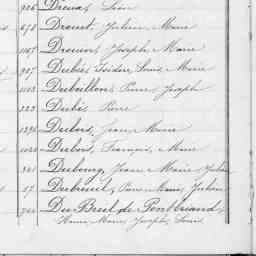 926 Dréoux, Léon
678 Drouet, Julien Marie
1107 Drouin, Joseph Marie
927 Dubié, Isidore Louis Marie
1103 Dubaillon, Pierre Joseph
323 Dubié, Pierre
1296 Dubois, Jean Marie
1020 Dubois, François, Marie
381 Dubourg, Jean Marie Julien
17 Dubreuil, Pierre Marie, Julien
Du Breil de Pontbriand
Marie, Joseph, Louis